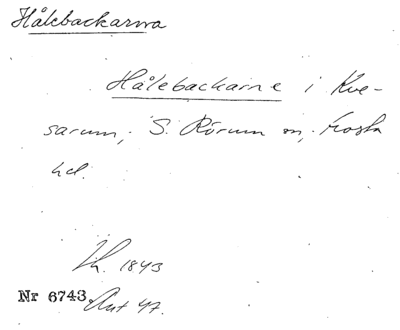 Hålebackarna
Hålebackarne i Kve-
sarum, S. Rörum sn, Frosta
hd.
Lh. 1843
Nr 6743. Ant 47.